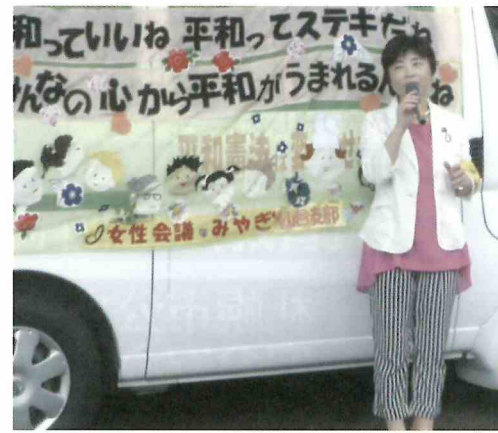 和っていいね 平和ってステキだね
んなの心から平和がうまれるん ね
平和憲法
女性会議・みやぎ仙台支部